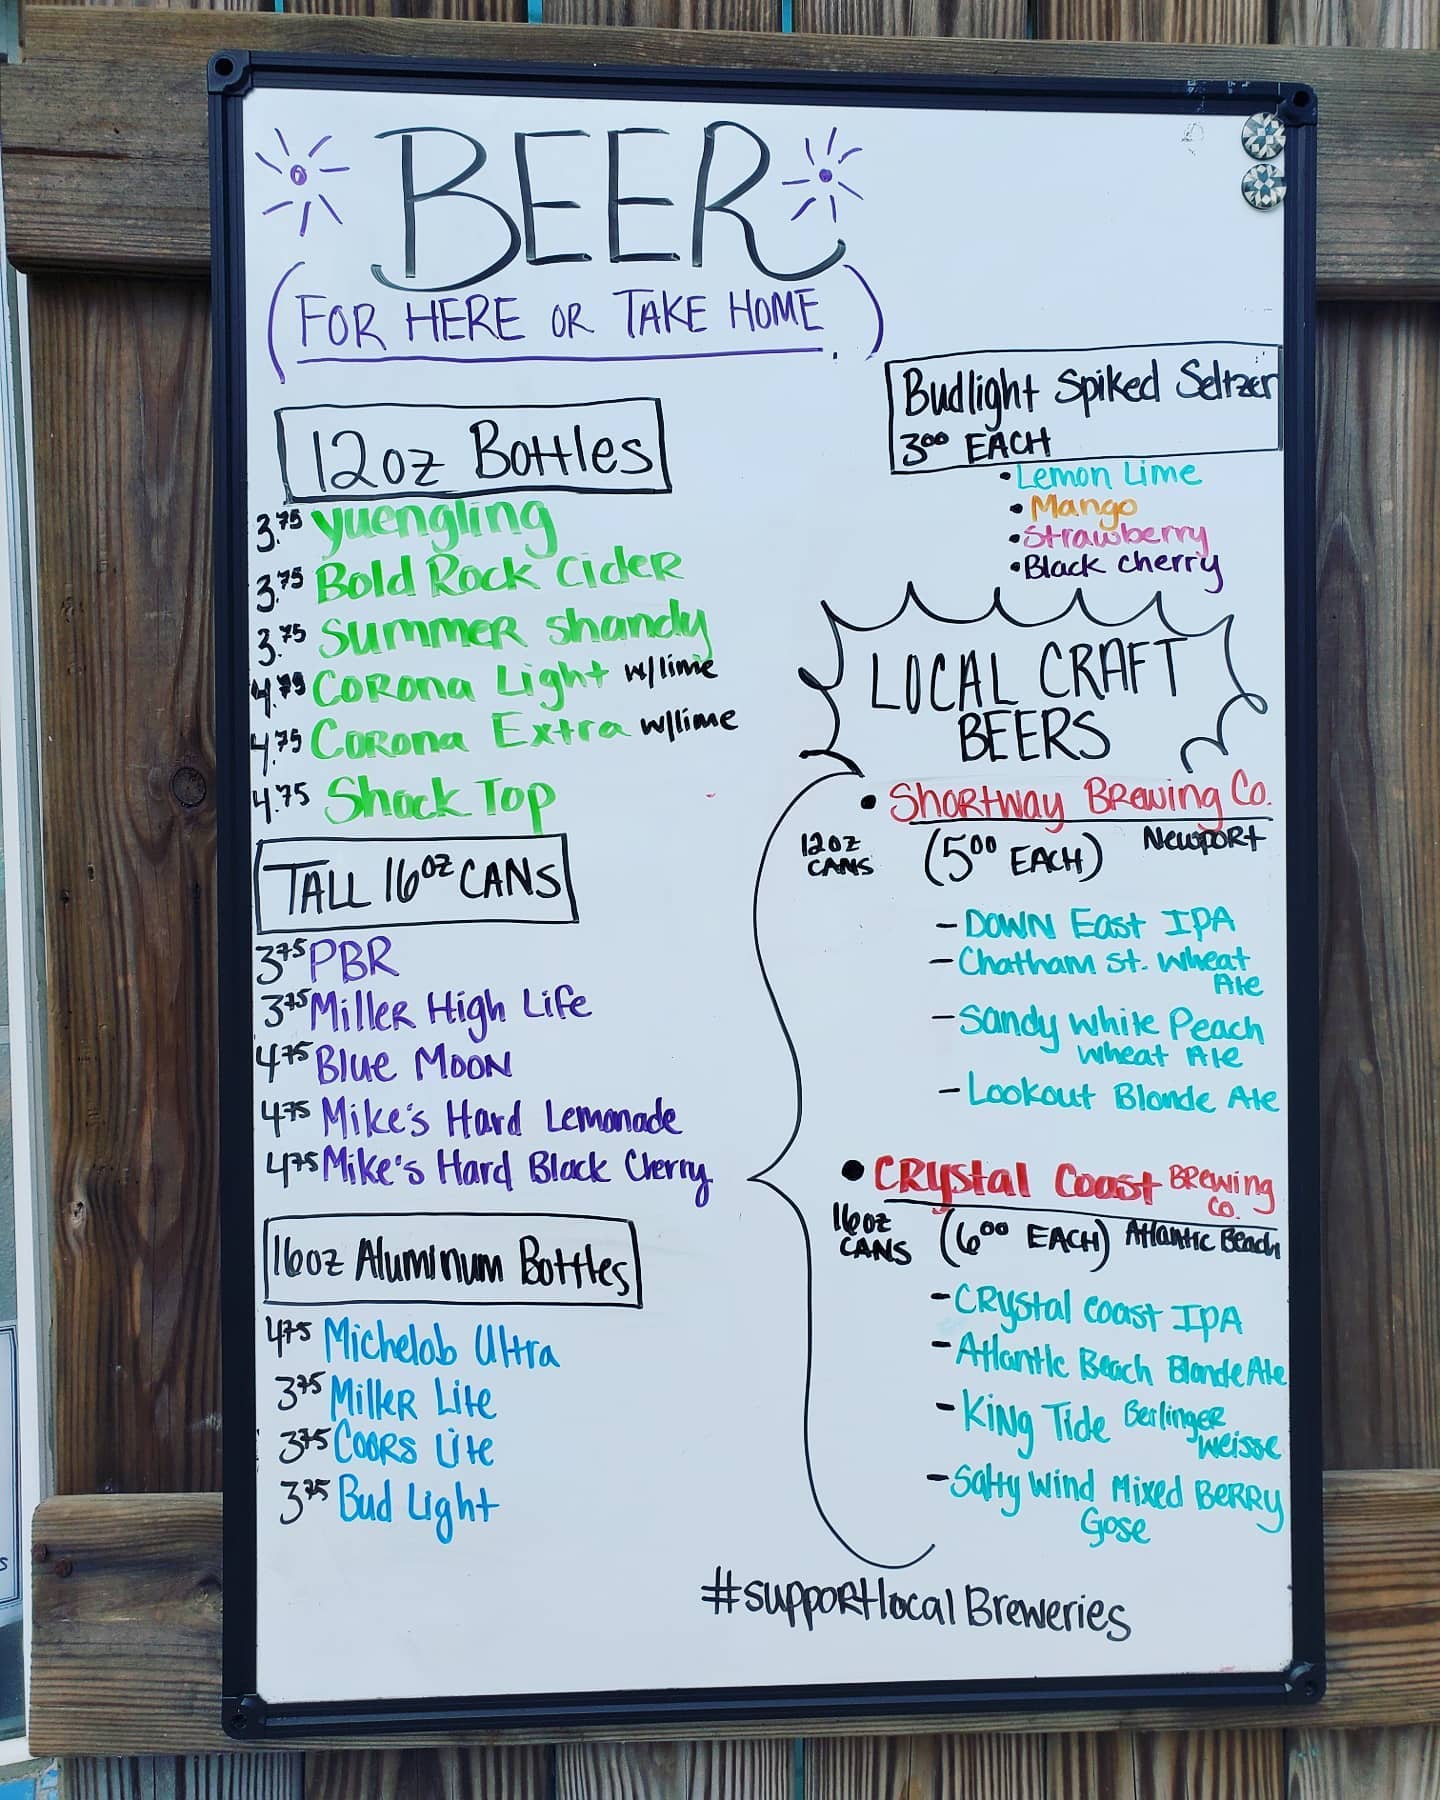 BEER
(FOR HERE OR TAKE HOME.)
12oz Bottles
3.75 Yuengling
3.75 Bold Rock Cider
3.75 Summer Shandy
4.75 Corona Light w/lime
4.75 Corona Extra w/lime
4.75 Shock Top
TALL 16oz CANS
3.75 PBR
3.75 Miller High Life
4.75 Blue Moon
4.75 Mike's Hard Lemonade
4.75 Mike's Hard Black Cherry
16oz Aluminum Bottles
4.75 Michelob Ultra
3.75 Miller Lite
3.75 Coors Lite
3.75 Bud Light
Budlight Spiked Seltzer
3.00 EACH
• Lemon Lime
• Mango
• Strawberry
• Black Cherry
LOCAL CRAFT
BEERS
• Shortway Brewing Co.
12oz CANS (5.00 EACH) Newport
- Down East IPA
- Chatham St. Wheat
Ale
- Sandy White Peach
Wheat Ale
- Lookout Blonde Ale
• Crystal Coast Brewing
Co.
16oz CANS (6.00 EACH) Atlantic Beach
- Crystal Coast IPA
- Atlantic Beach Blonde Ale
- King Tide Berlinger
Weisse
- Salty Wind Mixed Berry
Gose
#supportlocalBreweries